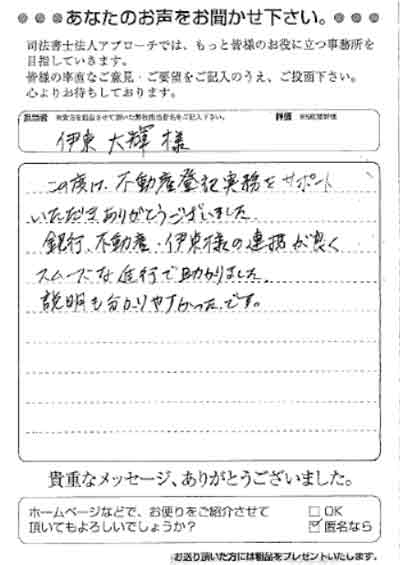 ●●●あなたのお声をお聞かせ下さい。●●●
司法書士法人アプローチでは、もっと皆様のお役に立つ事務所を
目指していきます。
皆様の率直なご意見・ご要望をご記入のうえ、ご投函下さい。
心よりお待ちしております。
担当者
評価
伊東 大輝 様
この度は、不動産登記実務をサポート
いただきありがとうございました。
銀行、不動産・伊東様の連携が良く
スムーズな進行で助かりました。
説明も分かりやすかったです。
貴重なメッセージ、ありがとうございました。
ホームページなどで、お便りをご紹介させて
頂いてもよろしいでしょうか?
□ OK
☑ 匿名なら
お送り頂いた方には粗品をプレゼントいたします。